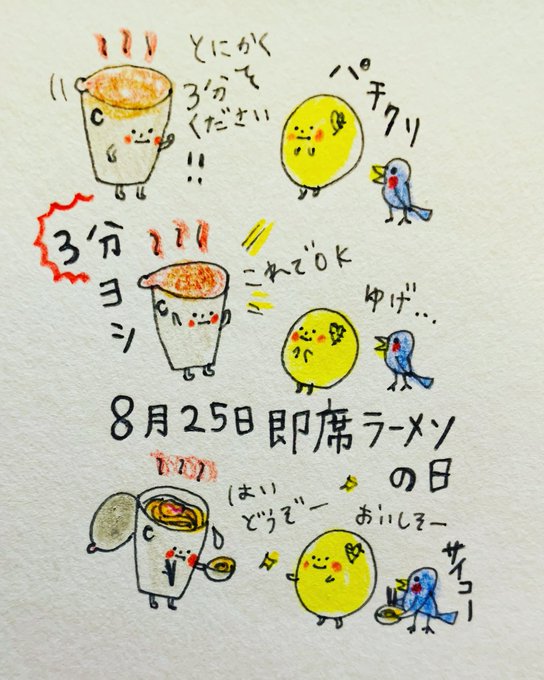 とにかく
3分を
ください
!!
パチクリ
C
3分ヨシ
これでOK
ゆげ…
C
8月25日即席ラーメン
の日
はい
どうぞー
おいしそー
サイコー
C